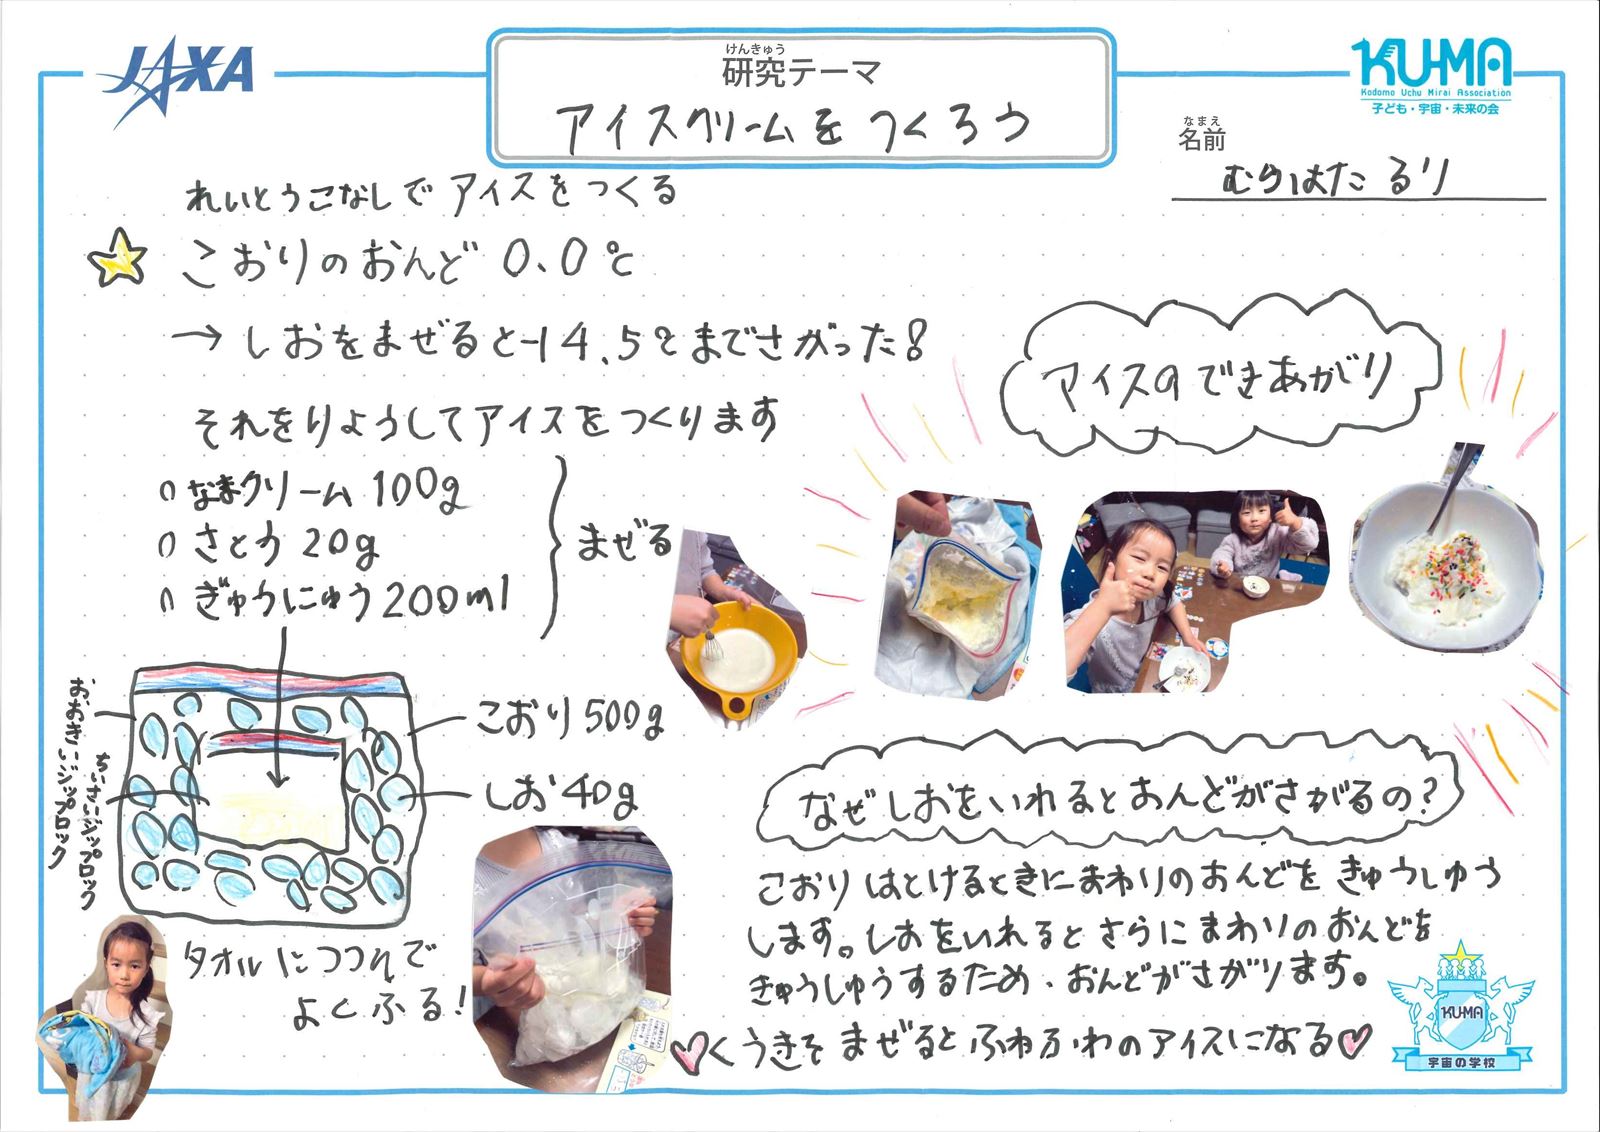 JAXA
けんきゅう
研究テーマ
アイスクリームをつくろう
KU-MA
Kodomo Uchu Mirai Association
子ども・宇宙・未来の会
なまえ
名前
むらはた るり
れいとうこなしでアイスをつくる
こおりのおんど 0.0℃
→ しおをまぜると-14.5℃までさがった!
それをりようしてアイスをつくります
なまクリーム 100g
さとう 20g
ぎゅうにゅう 200ml
まぜる
おおきいジップロック
ちいさいジップロック
こおり 500g
しお 40g
タオルにつつんで
よくふる!
アイスのできあがり
なぜしおをいれるとおんどがさがるの?
こおりはとけるときにまわりのおんどをきゅうしゅう
します。しおをいれるとさらにまわりのおんどを
きゅうしゅうするため、おんどがさがります。
くうきをまぜるとふわふわのアイスになる
KU-MA
宇宙の学校